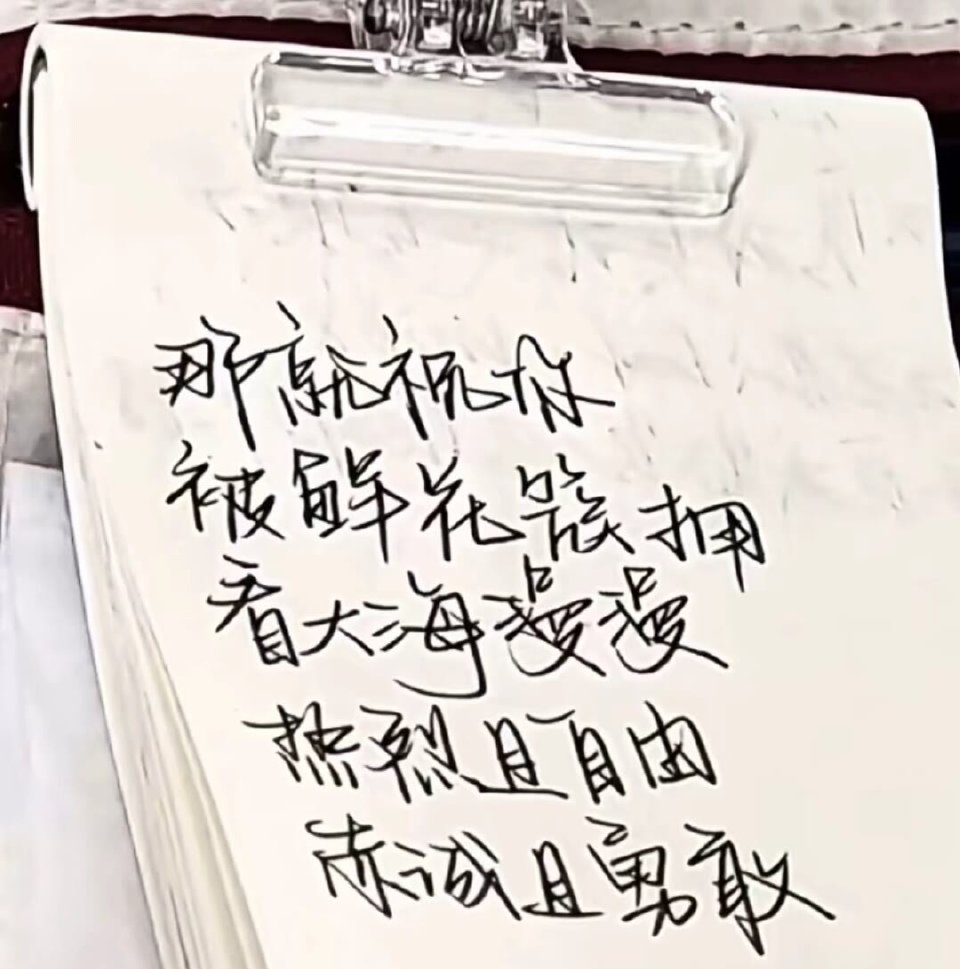 那就祝你
被鲜花簇拥
看大海漫漫
热烈且自由
赤诚且勇敢